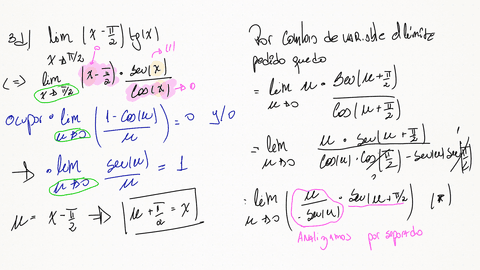 3.d) lim (x - π/2) tg(x)
x→π/2
(=) lim (x - π/2) · sen(x)/cos(x)
x→π/2
0
→(1)
→0
Ocupar · lim ((1 - cos(u))/u) = 0 y/o
u→0
→ · lim sen(u)/u = 1
u→0
u = x - π/2 → | u + π/2 = x |
Por cambio de variable el límite
pedido queda
= lim u · sen(u + π/2)/cos(u + π/2)
u→0
= lim u · sen(u + π/2)/(cos(u) · cos(π/2) - sen(u) sen(π/2))
u→0
= lim (u/-sen(u) · sen(u + π/2)) (*)
u→0
Analizamos por separado